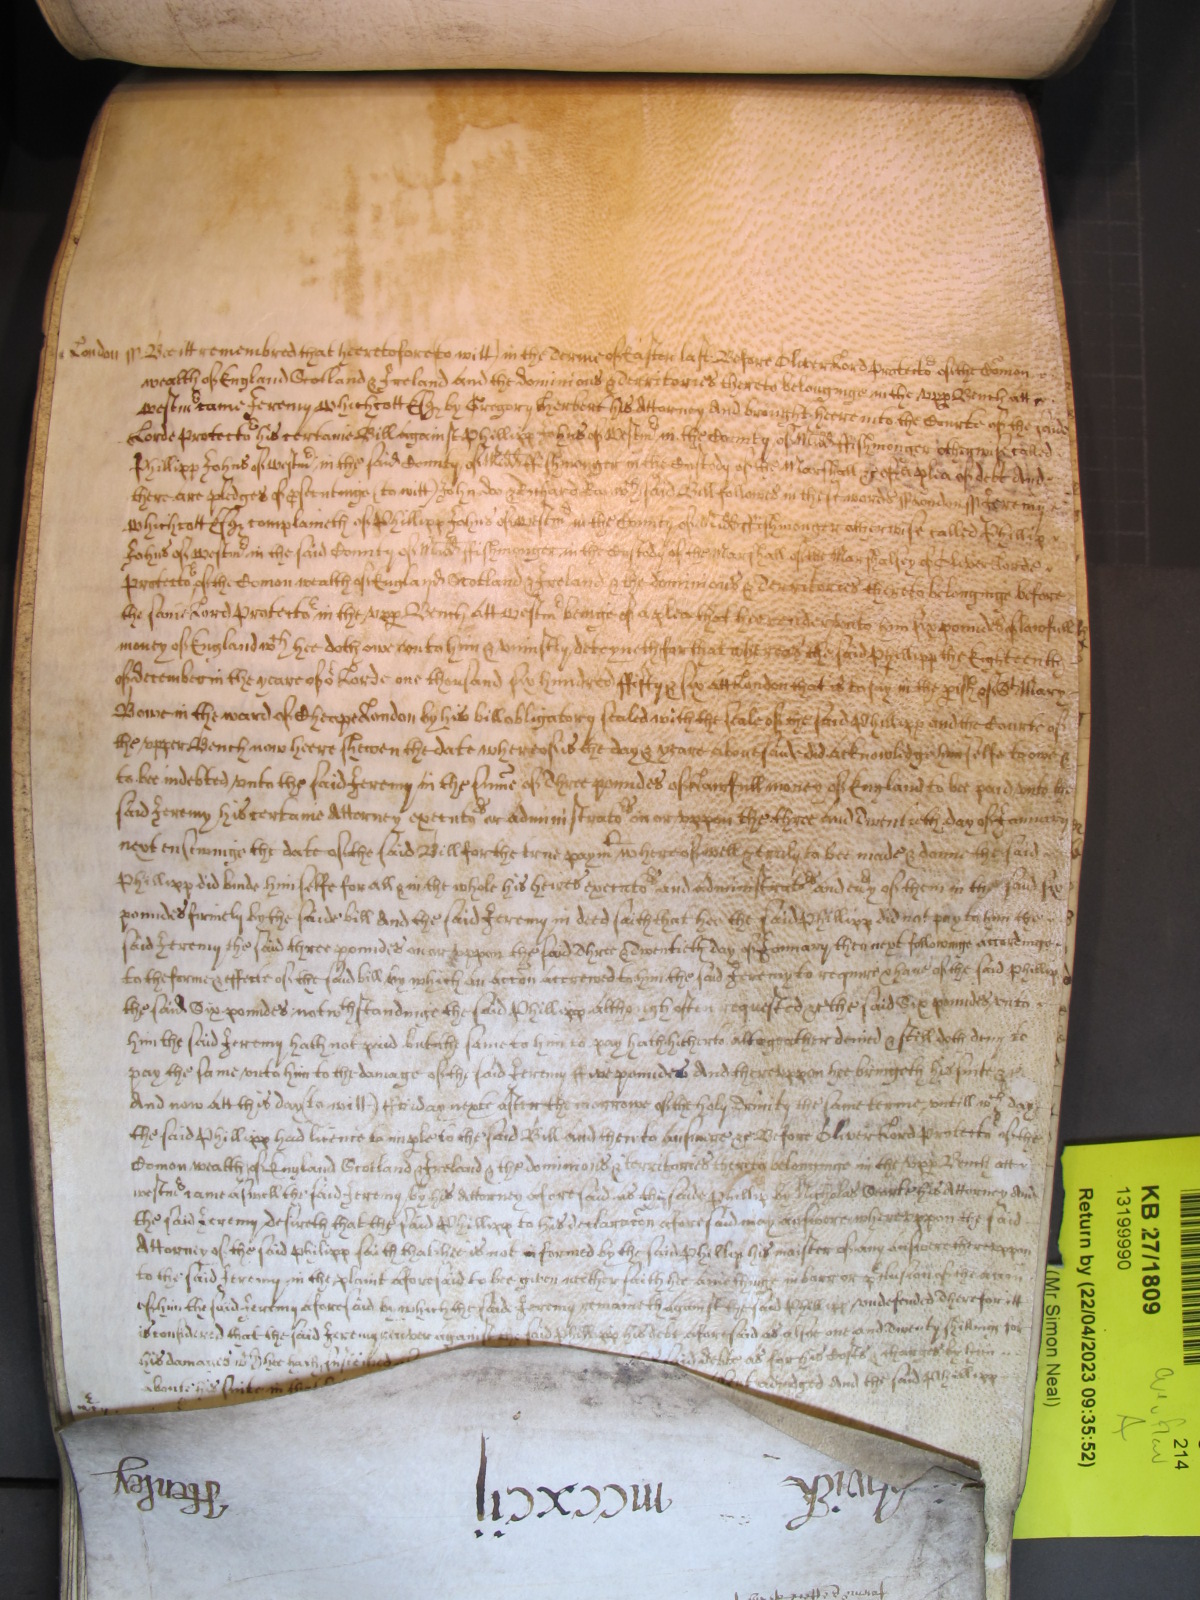 London ss Bee itt remembred that heeretofore (to witt) in the Terme of Easter last Before Oliver Lord Protector of the Comon
wealth of England Scotland & Ireland and the dominions & Territories thereto belonginge in the Upp Bench att
Westmr came Jeremy Whichcott Esqr by Gregory Herbert his Attorney And brought heere into the Courte of the saide
Lorde Protector his certaine Bill against Phillipp Johns of Westmr in the County of Midd ffishmonger otherwise called
Phillipp Johns of Westmr in the said County of Midd ffishmonger in the Custody of the Marshall &c of a plea of debt And
there are pledges of psecutinge (to witt) John Doo & Richard Roo wch said Bill followes in these words ss London ss Jeremy
Whichcott Esqr complaineth of Phillipp Johns of Westmr in the County of Midd ffishmonger otherwise called Phillip
Johns of Westmr in the said County of Midd ffishmonger in the Custody of the Marshall of the Marshalsey of Oliver Lorde
Protector of the Comon wealth of England Scotland & Ireland & the dominions & Territories thereto belonginge before
the same Lord Protector in the Upp Bench att Westmr beinge of a plea that hee render unto him six poundes of lawfull
money of England wch hee doth owe unto him & uniustly deteyneth for that whereas the said Phillipp the Eighteenth
of december in the yeare of or Lorde one thousand six hundred ffifty & six att London that is to say in the pish of St Mary
Bowe in the ward of Cheape London by his bill obligatory sealed with the seale of the said Phillipp and the Courte of
the upper Bench now heere shewen the date whereof is the day & yeare abovesaide did acknowledge himselfe to owe &
to bee indebted unto the said Jeremy in the sume of Three poundes of lawfull money of England to bee paid unto the
said Jeremy his certaine Attorney executors or administrators on or uppon the three and Twentieth day of January
next ensewinge the date of the said Bill for the true paymt whereof well & truly to bee made & donne the said
Phillipp did binde himselfe for all & in the whole his heires executors and administrators and evy of them in the said six
poundes firmely by the saide bill And the said Jeremy in deed saith that hee the said Phillipp did not pay to him the
said Jeremy the said three poundes on or uppon the said Three & Twentieth day of January then next followinge accordinge
to the forme & effecte of the said bill by which an accon accrewed to him the said Jeremy to require & have of the said Phillipp
the said Six poundes notwthstandinge the said Phillipp although often requested &c the said Six poundes unto
him the said Jeremy hath not paid but the same to him to pay hath hitherto altogeather denied & still doth deny to
pay the same unto him to the damage of the said Jeremy ffive poundes And thereuppon hee bringeth his suite &c
And now att this day (to witt) ffriday next after the morrowe of the holy Trinity the same terme untill wch day
the said Phillipp had licence to imple to the said Bill and then to answere &c Before Oliver Lord Protector of the
Comon wealth of England Scotland & Ireland & the dominions & territories thereto belonginge in the Upp Bench att
Westmr came aswell the said Jeremy by his Attorney aforesaid as the saide Phillip by Nicholas his Attorney And
the said Jeremy desireth that the said Phillipp to his declaracon aforesaid may answere whereuppon the said
Attorney of the said Philipp saith that hee is not informed by the said Phillip his maister of any answere thereuppon
to the said Jeremy in the plaint aforesaid to bee given neither saith hee anie thinge in barr or of the accon
of him the said Jeremy aforesaid by which the said Jeremy remaineth against the said Phillipp undefended Therefor itt
is considered that the said Jeremy recover against the said Phillipp his debt aforesaid as alsoe one and Twenty shillings for
his damages wch hee hath susteined said debte as for his Costs & charges by him
about his suite in that adjudged And the said Phillipp
Henley
mcccxcij
KB 27/1809
13199990
Return by (22/04/2023 09:35:52)
(Mr. Simon Neal)
214
A